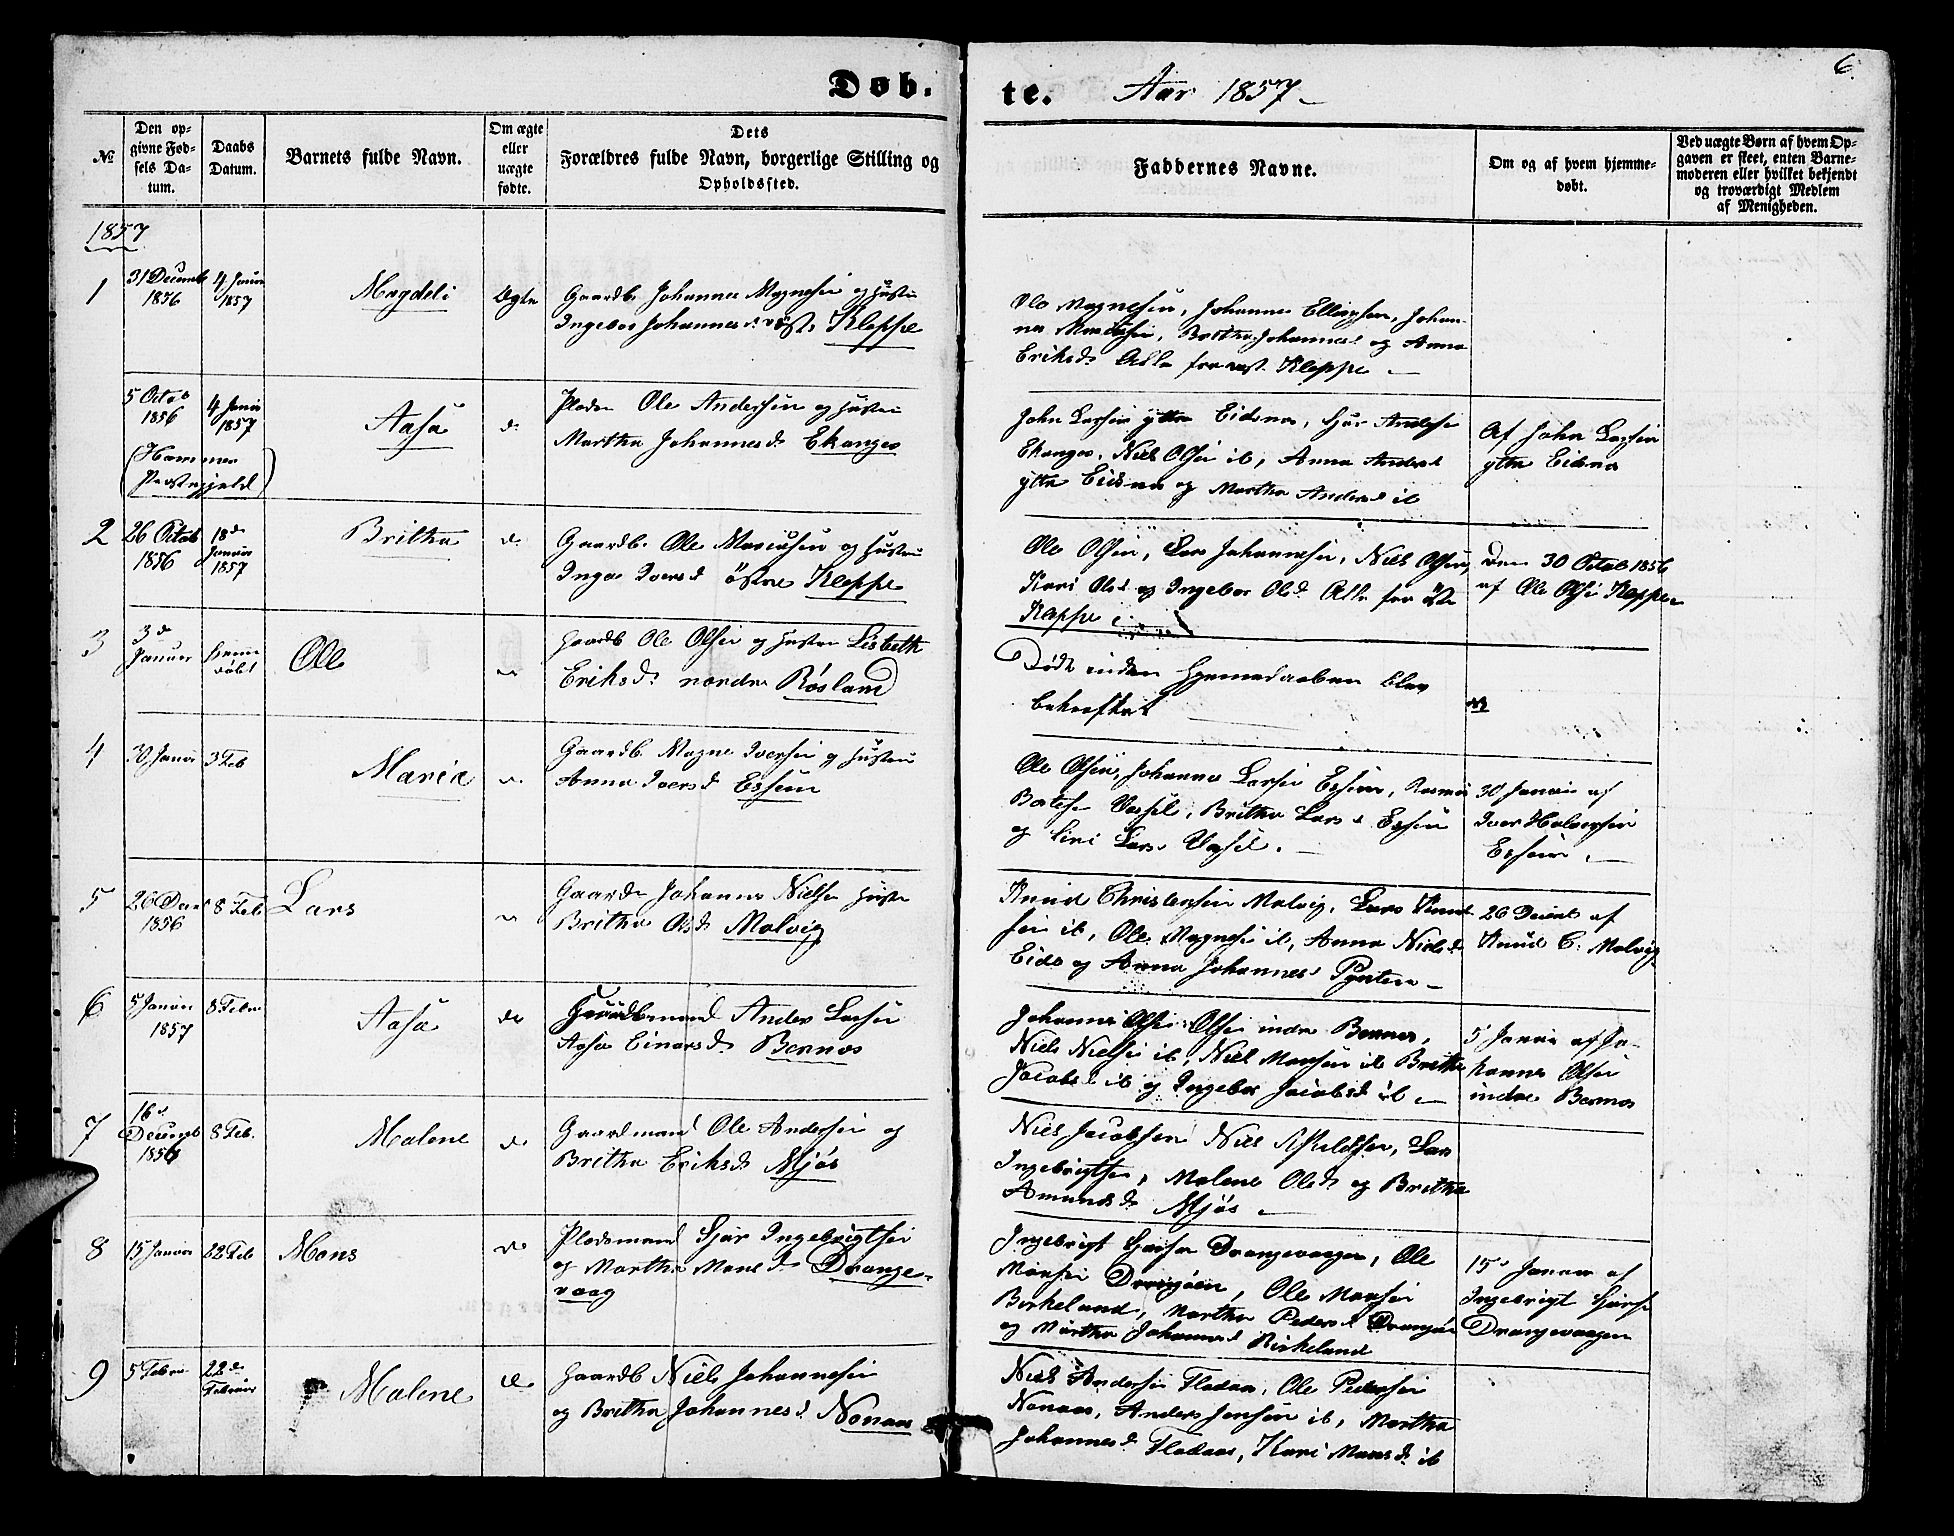 Døb. te. Aar 1857
6
№
Den op-
givne Fød-
sels Da-
tum.
Daabs
Datum.
Barnets fulde Navn.
Om ægte
eller
uægte
fødte.
Dets
Forældres fulde Navn, borgerlige Stilling og
Opholdssted.
Faddernes Navne.
Om og af hvem hjemme-
døbt.
Ved uægte Børn af hvem Op-
gaven er skeet, enten Barne-
moderen eller hvilket bekjendt
og troværdigt Medlem
af Menigheden.
1857
1
31 Decemb
1856
4 Januar
1857
Magdeli
Ægte
Gaardb. Johannes Magnesen og Hustru
Ingebor Johannesd. Kleppe
Ole Magnesen, Johannes Ellingsen, Johan-
nes Monsen, Britha Johannesd og Anna
Eriksd. Alle fra Kleppe
5 Octob
1856
4 Januar
1857
(Hammer
Præstegjeld)
Aasa
d.
Pladsm Ole Andersen og Hustru
Martha Johannesd. Ekanges
John Larsen ytre Eidsnes, Andersen
Ekanges, Niels Olsen ib, Anna Andersd
ytre Eidsnes og Martha Andersd ib
Af John Larsen
ytre Eidsnes
2
26 Octob
1856
18de
Januar
1857
Britha
d.
Gaardb. Ole Marcusen og Hustru
Inga Iversd østre Kleppe
Ole Olsen, Lars Johannesen, Niels Olsen,
Kari Olsd og Ingebor Olsd Alle fra østre
Kleppe.
Den 30 Octob 1856
af Ole Olsen Kleppe
3
3de
Januar
hjemme
døbt
Ole
Gaardb Ole Olsen og Hustru Lisbeth
Eriksd. nordre Røsland
Døde inden Hjemmedaaben blev
bekræftet
4
30 Januar
3 Feb
Maria
Gaardb Magne Iversen og Hustru
Anna Iversd Espeun
Ole Olsen, Johannes Larsen
Britha Larsd
og Larsd
30 Januar af
Iver Halversen
5
26 Dec
1856
8 Feb
Lars
Gaardb Johannes Nielsen Hustru
Britha Olsd. Malvig
Knud Christensen Malvig, Lars Knud-
sen ib, Ole Magnesen ib, Anna Nielsd
Eide og Anna Johannesd Pynten
26 Decemb af
Knud C. Malvig
6
5 Januar
1857
8 Febr
Aasa
do
Gaardbmand Anders Larsen
Aasa Einarsd. Bernes
Johannes Olsen indre Bernes,
Niels Nielsen ib, Niels Monsen ib Britha
Jacobsd ib og Ingebor Jacobsd ib
5 Januar af Jo-
hannes Olsen
indre Bernes
7
16de
Decemb
1856
8 Feb.
Malene
d
Gaardmand Ole Andersen og
Britha Eriksd. Mjøs
Niels Jacobsen Niels Askildsen, Lars
Ingebrigtsen, Malene Olsd. og Britha
Amundsd. Mjøs
8
15 Januar
22 Feb
Mons
do
Pladsmand Sjur Ingebrigtsen
og Martha Monsd. Drange-
vaag
Ingebrigt Drangevaagen, Ole
Monsen Drangøen, Ole Monsen
Birkeland, Martha Pedersd Drangøen
og Martha Johannesd Birkeland
15de Januar af
Ingebrigt
Drangevaagen
9
5 Febr
22de
Februar
Malene
do
Gaardb Niels Johannesen
og Britha Johannesd. Nonaas
Niels Andersen Fladaas, Ole Pedersen
Nonaas, Anders Jensen ib, Martha
Johannesd Fladaas, Kari Monsd. ib